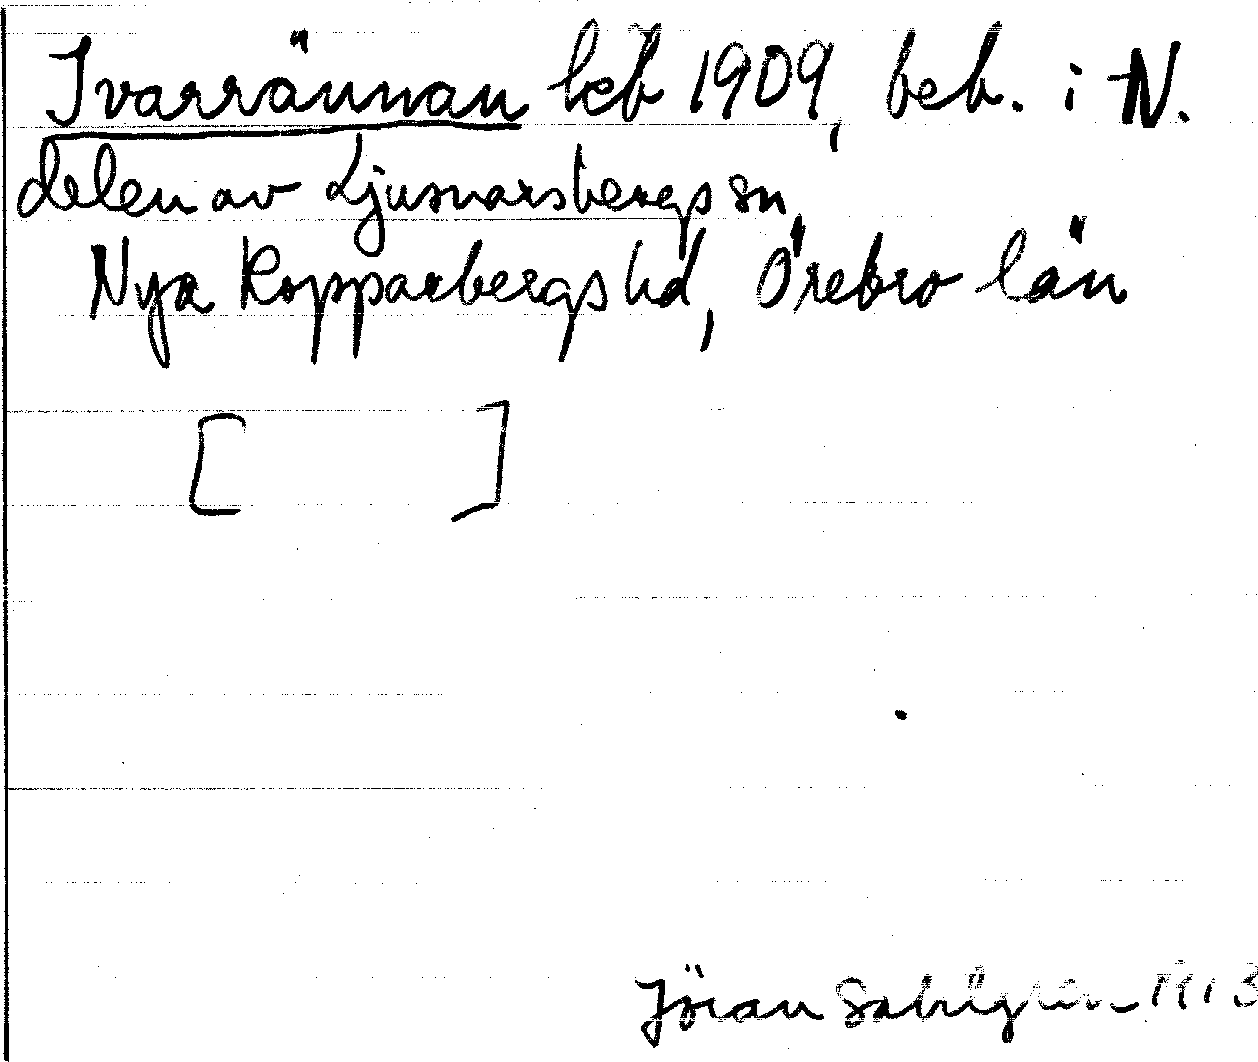 Ivarrännan leb 1909, beb. i N.
delen av Ljusnarsbergs sn,
Nya Kopparbergs hd, Örebro län
[ ]
Jöran Sahlgren 1913